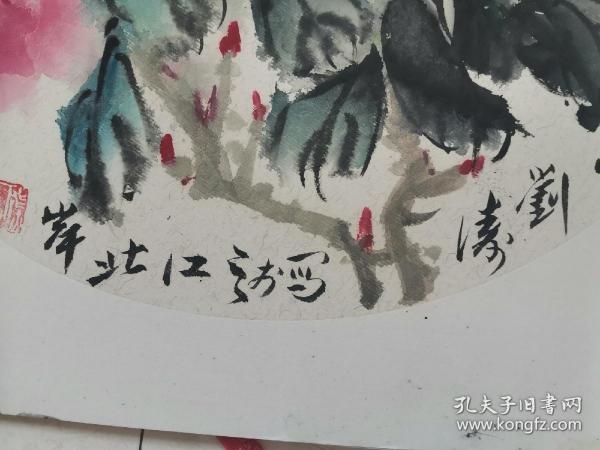 劉濤
写於江北岸
孔夫子旧书网
www.kongfz.com